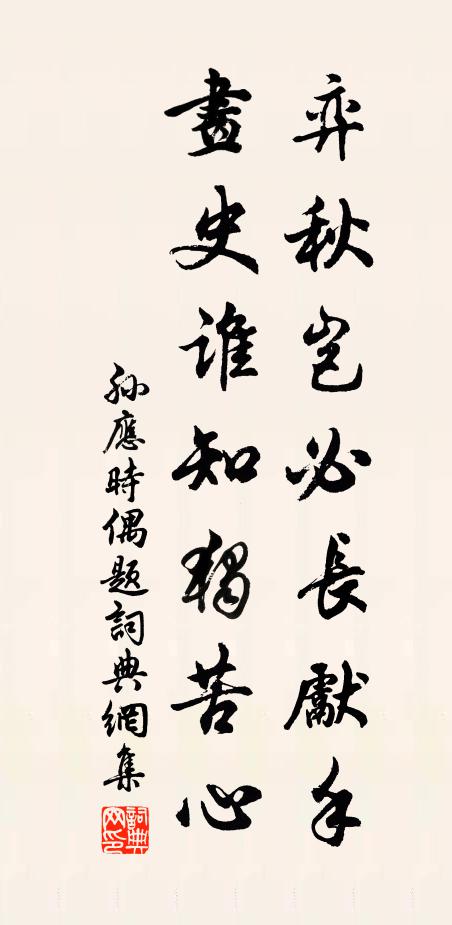 弈秋豈必長獻手
畫史誰知獨苦心
孫應時偶題詞典網集
詞典網印